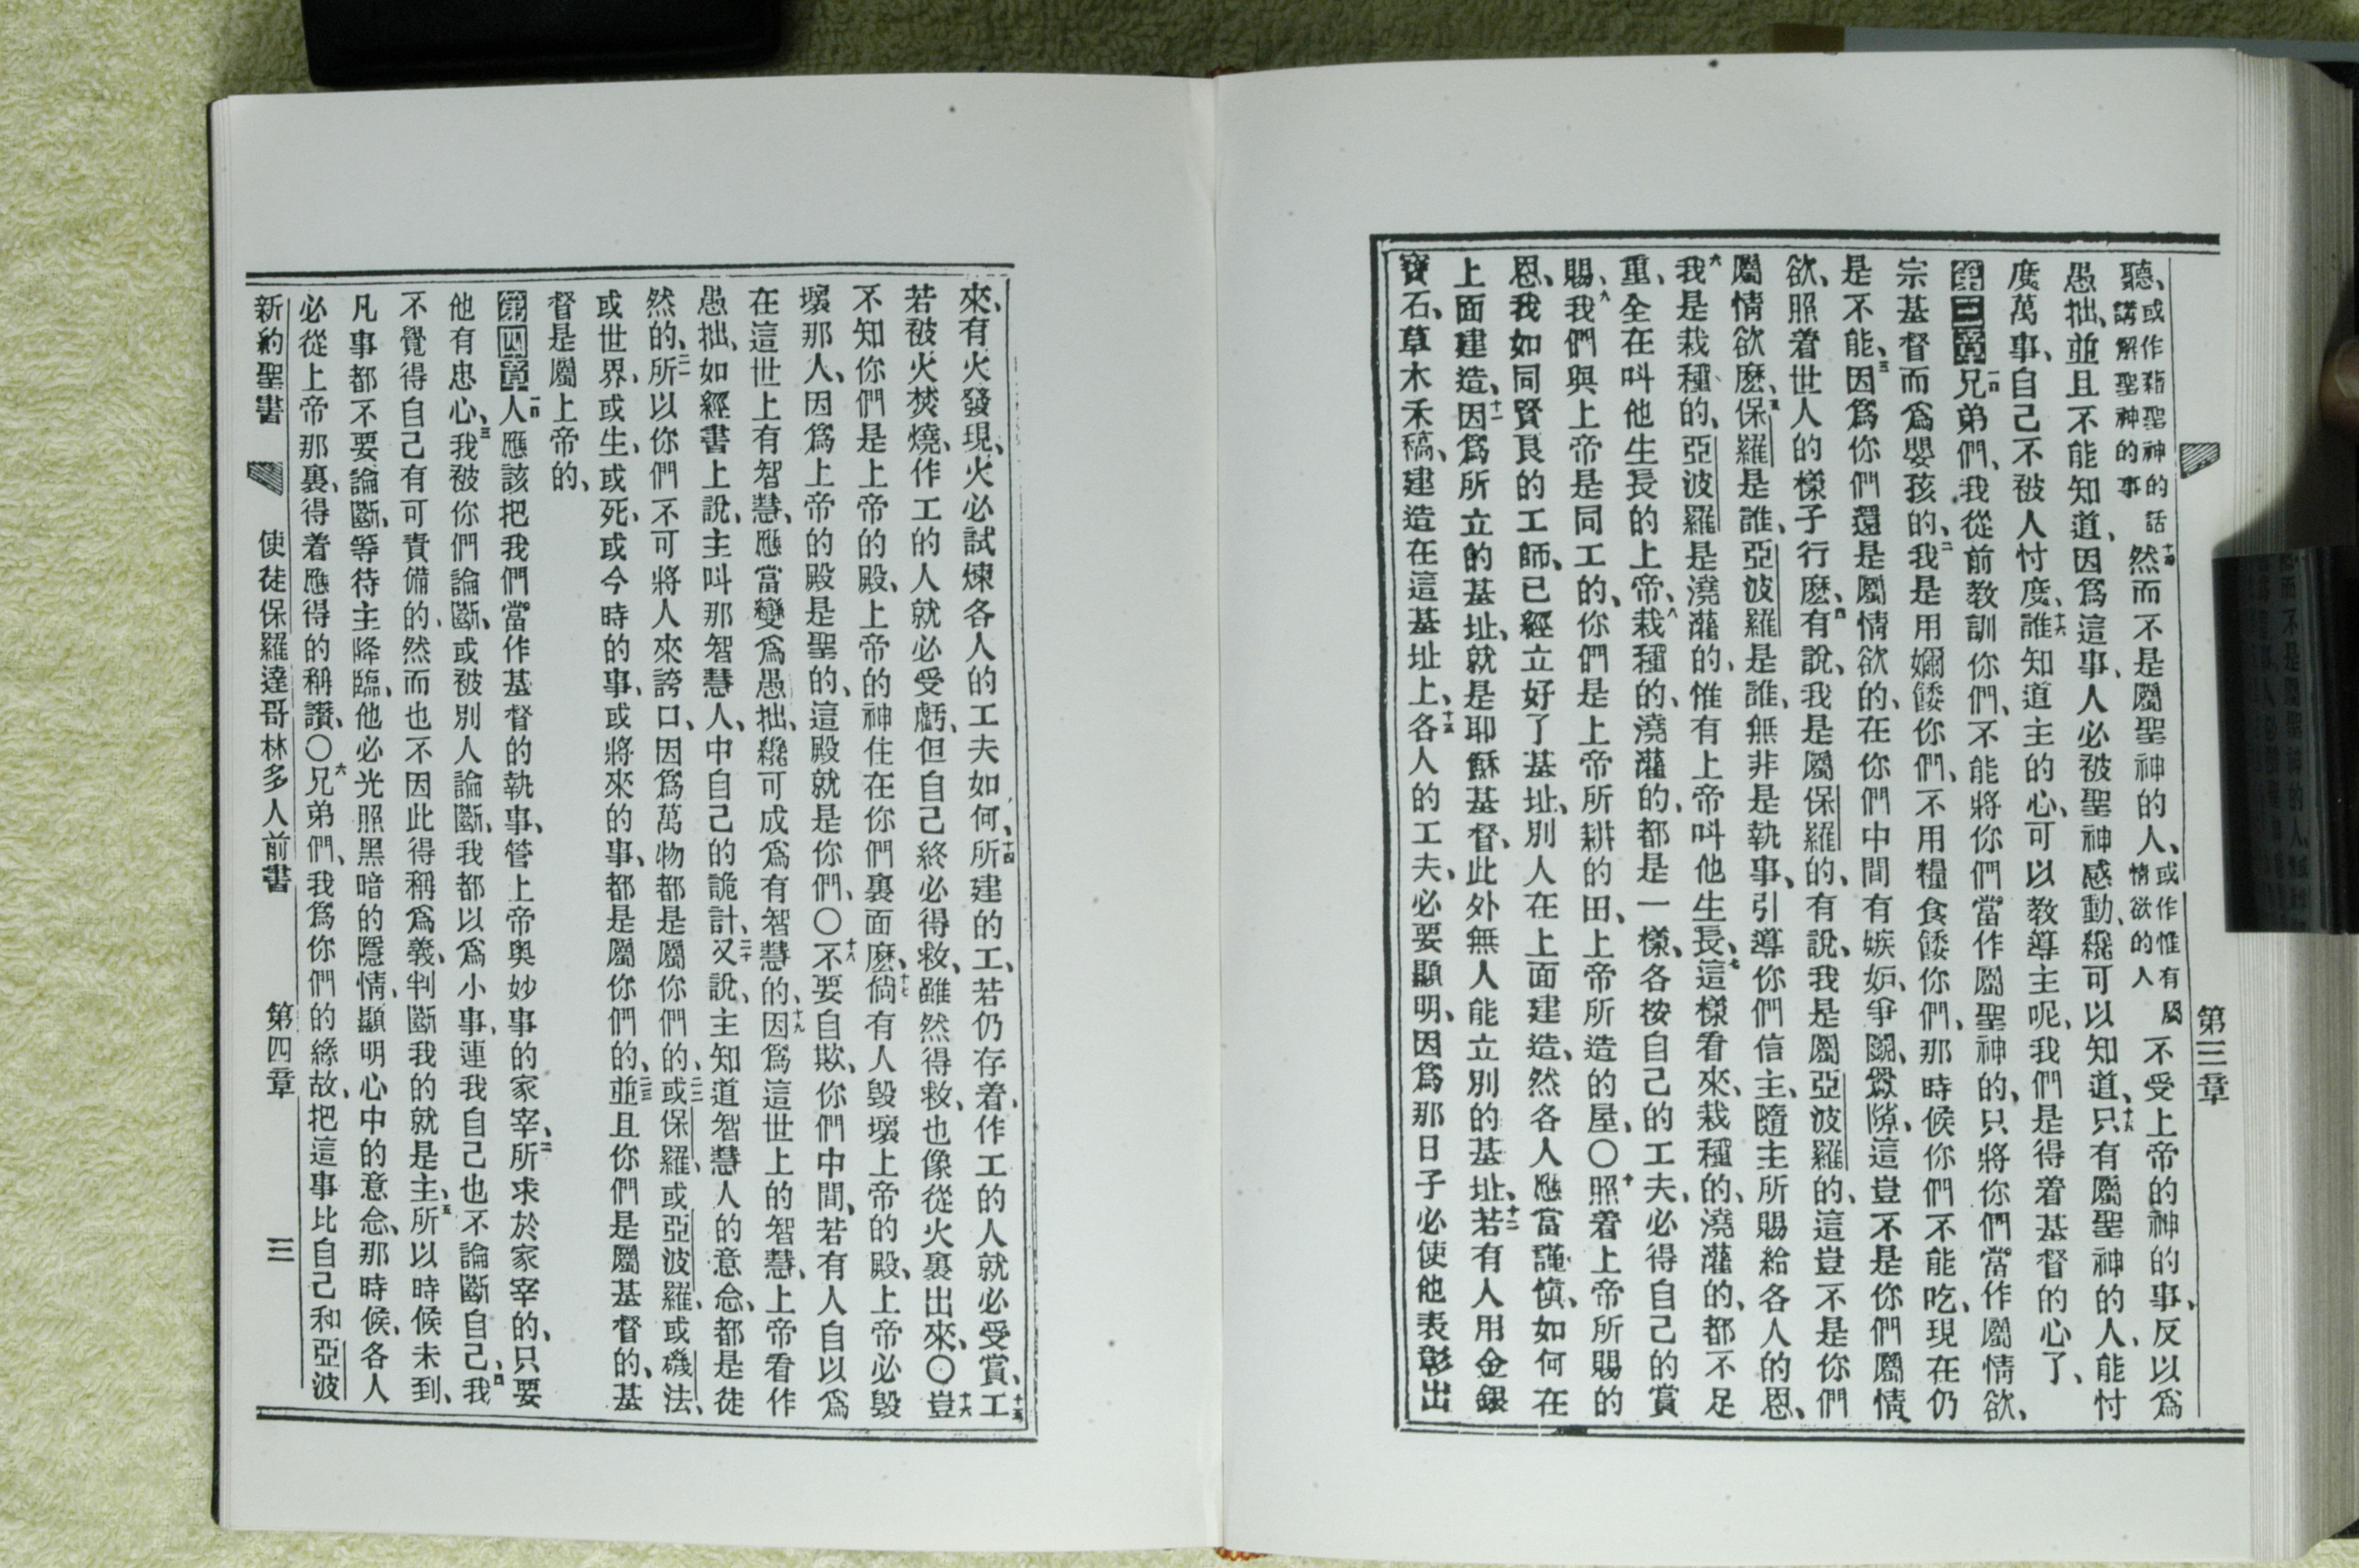 第三章
聽、或作藉聖神的話講解聖神的事十四然而不是屬聖神的人、或作惟有屬情欲的人不受上帝的神的事、反以爲
愚拙、並且不能知道、因爲這事、人必被聖神感動、纔可以知道、十五只有屬聖神的人、能忖
度萬事、自己不被人忖度、十六誰知道主的心、可以教導主呢、我們是得着基督的心了、
第三章一節兄弟們、我從前教訓你們、不能將你們當作屬聖神的、只將你們當作屬情欲、
宗基督而爲嬰孩的、二我是用嬭餧你們、不用糧食餧你們、那時候你們不能吃、現在仍
是不能、三因爲你們還是屬情欲的、在你們中間有嫉妒、爭鬬、釁隙、這豈不是你們屬情
欲、照着世人的樣子行麽、四有說、我是屬保羅的、有說、我是屬亞波羅的、這豈不是你們
屬情欲麽、五保羅是誰、亞波羅是誰、無非是執事、引導你們信主、隨主所賜給各人的恩、
六我是栽種的、亞波羅是澆灌的、惟有上帝叫他生長、七這樣看來、栽種的、澆灌的、都不足
重、全在叫他生長的上帝、八栽種的、澆灌的、都是一樣、各按自己的工夫、必得自己的賞
賜、九我們與上帝是同工的、你們是上帝所耕的田、上帝所造的屋、〇十照着上帝所賜的
恩、我如同賢良的工師、已經立好了基址、別人在上面建造、然各人應當謹愼、如何在
上面建造、十一因爲所立的基址、就是耶穌基督、此外無人能立別的基址、十二若有人用金銀
寶石、草木禾稿、建造在這基址上、十三各人的工夫、必要顯明、因爲那日子必使他表彰出
來、有火發現、火必試煉各人的工夫如何、十四所建的工、若仍存着、作工的人就必受賞、十五工
若被火焚燒、作工的人就必受虧、但自己終必得救、雖然得救、也像從火裏出來、〇十六豈
不知你們是上帝的殿、上帝的神住在你們裏面麽、十七倘有人毀壞上帝的殿、上帝必毀
壞那人、因爲上帝的殿是聖的、這殿就是你們、〇十八不要自欺、你們中間、若有人自以爲
在這世上有智慧、應當變爲愚拙、纔可成爲有智慧的、十九因爲這世上的智慧、上帝看作
愚拙、如經書上說、主叫那智慧人、中自己的詭計、二十又說、主知道智慧人的意念、都是徒
然的、二一所以你們不可將人來誇口、因爲萬物都是屬你們的、二二或保羅、或亞波羅、或磯法、
或世界、或生、或死、或今時的事、或將來的事、都是屬你們的、二三並且你們是屬基督的、基
督是屬上帝的、
第四章一節人應該把我們當作基督的執事、管上帝奧妙事的家宰、二所求於家宰的、只要
他有忠心、三我被你們論斷、或被別人論斷、我都以爲小事、連我自己也不論斷自己、四我
不覺得自己有可責備的、然而也不因此得稱爲義、判斷我的就是主、五所以時候未到、
凡事都不要論斷、等待主降臨、他必光照黑暗的隱情、顯明心中的意念、那時候、各人
必從上帝那裏、得着應得的稱讚、〇六兄弟們、我爲你們的緣故、把這事比自己和亞波
新約聖書 使徒保羅達哥林多人前書 第四章 三